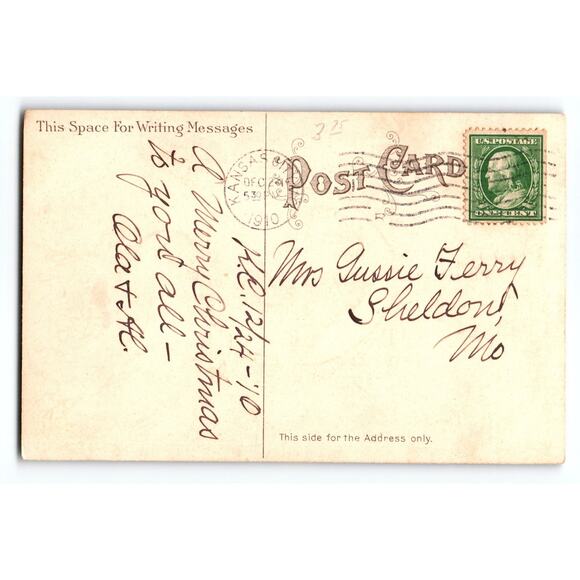 This Space For Writing Messages
3 25
POST CARD
U.S. POSTAGE
ONE CENT
KANSAS CITY
DEC 24
1910
K.C. 12/24-10
A Merry Christmas
to you all-
Ola & Al.
Mrs Gussie Ferry
Sheldon,
Mo
This side for the Address only.